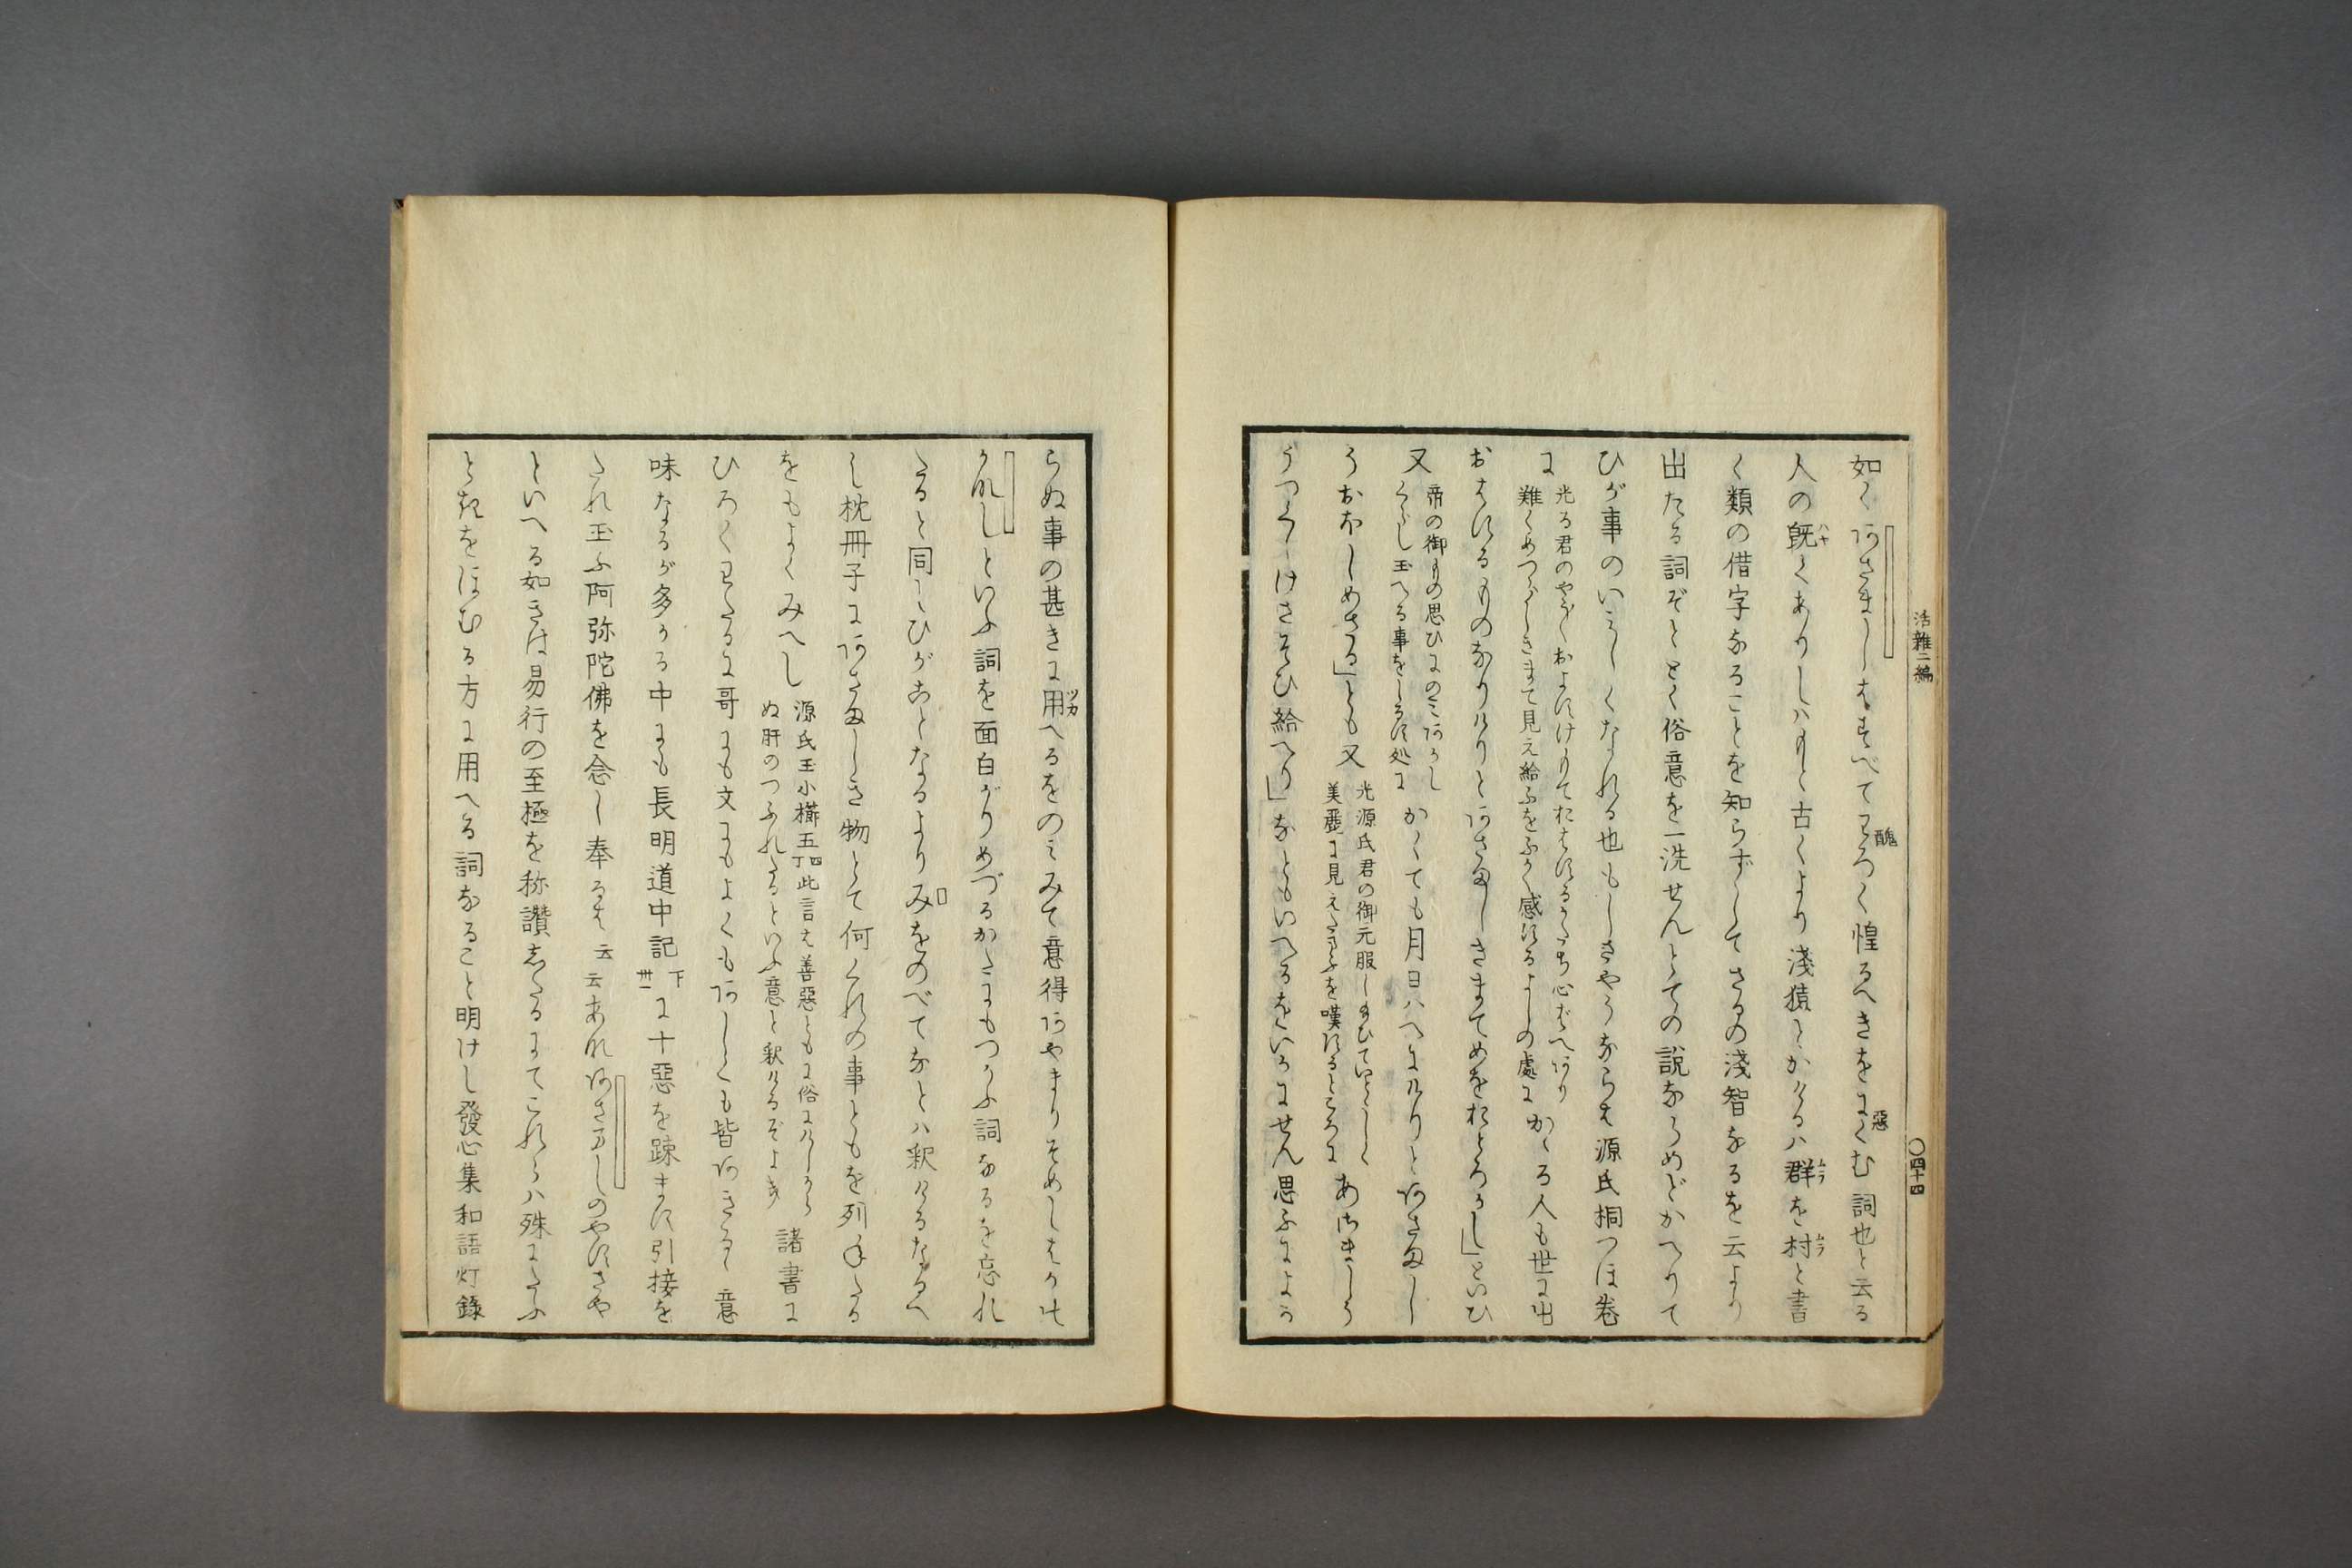 活雑二編
〇四十四
如くあさましはすべてわろく惶るへきをにくむ詞也と云る
醜
惡
人の既くありしハもと古くより淺猿とかけるハ群を村と書
ハヤ
ムラ
ムラ
く類の借字なることを知らずしてさるの淺智なるを云より
出たる詞ぞととく俗意を一洗せんとての説ならめどかへりて
ひが事のいみしくなれる也もしさやうならは源氏桐つほ卷
に
光る君の
おはけるものなりけりとあさましきまてめをおとろかし」といひ
難くめつらしきまて見え給ふをふかく感するよしの處に
かゝる人も世に出
又
帝の御
思ひにのミあかし
くらし玉へる事をしるす処に
かくても月日ハへにけりとあさまし
うおほしめさる」とも又
光源氏君の御元服し
美麗に見えたまふを嘆するところに
あさましう
うつくしけさそひ給へり」なともいへるをいかにせん思ふによか
らぬ事の甚きに用へるをのミみて意得あやまりそめしはかの
ツカ
かなしといふ詞を面白がりめづるかたにもつかふ詞なるを忘れ
たると同しひがことなるよりみをのべてなとハ釈けるなるへ
し枕冊子にあさましき物とて何くれの事ともを列ねたる
をもよくみへし
源氏玉小櫛五四丁此言は善惡ともに俗に
ぬ肝のつふれたるといふ意と釈けるぞよき
諸書に
ひろくわたるに哥にも文にもよくもあしくも皆あさまし意
味なるが多かる中にも長明道中記
下
卅一
に十惡を疎ます引接を
たれ玉ふ阿弥陀佛を念し奉るは云云あなあさましのやすさや
といへる如きは易行の至極を称讃したるにてこれらハ殊にたふ
ときをほむる方に用へる詞なること明けし發心集和語灯錄